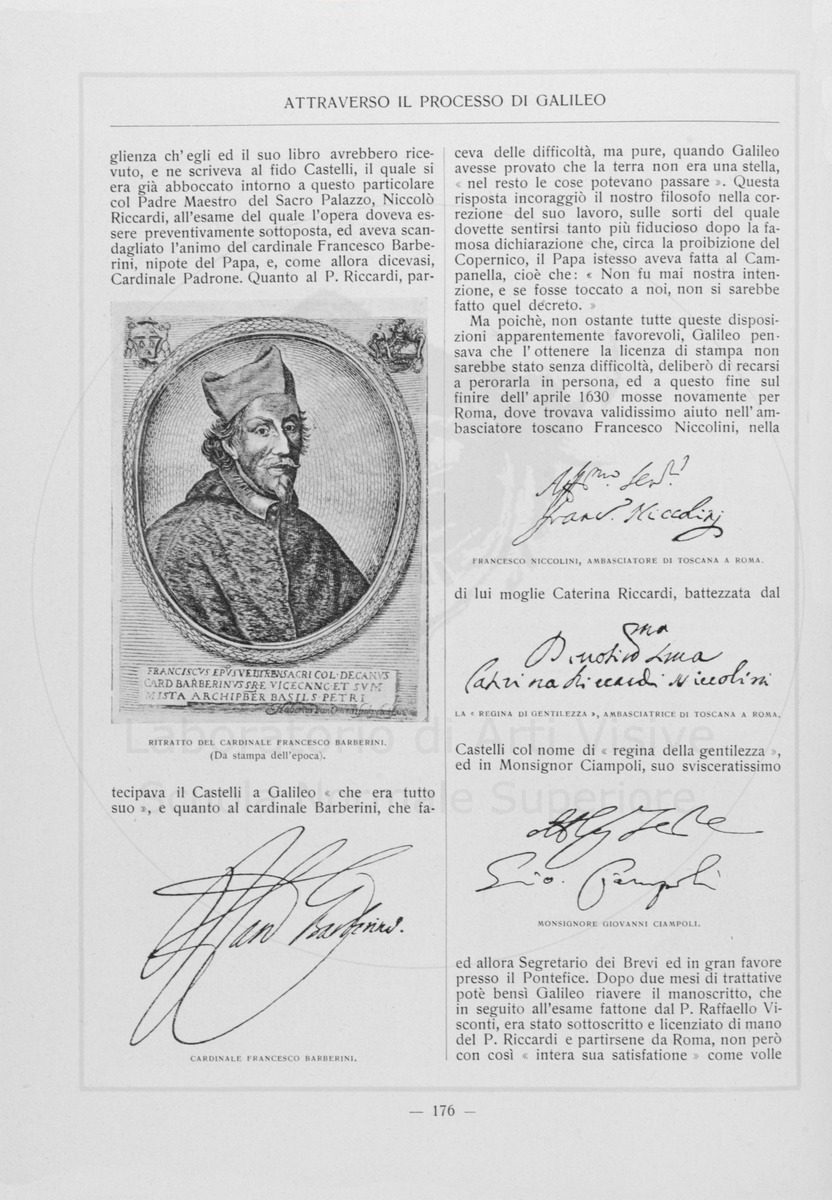 ATTRAVERSO IL PROCESSO DI GALILEO
glienza ch'egli ed il suo libro avrebbero rice-
vuto, e ne scriveva al fido Castelli, il quale si
era già abboccato intorno a questo particolare
col Padre Maestro del Sacro Palazzo, Niccolò
Riccardi, all'esame del quale l'opera doveva es-
sere preventivamente sottoposta, ed aveva scan-
dagliato l'animo del cardinale Francesco Barbe-
rini, nipote del Papa, e, come allora dicevasi,
Cardinale Padrone. Quanto al P. Riccardi, par-
FRANCISCVS EPVS VELITERN SACRI COL·DECANVS
CARD BARBERINVS S·R·E VICECANC·ET SVM
MISTA ARCHIPBER BASIL S·PETRI
RITRATTO DEL CARDINALE FRANCESCO BARBERINI.
(Da stampa dell'epoca).
tecipava il Castelli a Galileo « che era tutto
suo », e quanto al cardinale Barberini, che fa-
Barberino.
CARDINALE FRANCESCO BARBERINI.
ceva delle difficoltà, ma pure, quando Galileo
avesse provato che la terra non era una stella,
« nel resto le cose potevano passare ». Questa
risposta incoraggiò il nostro filosofo nella cor-
rezione del suo lavoro, sulle sorti del quale
dovette sentirsi tanto più fiducioso dopo la fa-
mosa dichiarazione che, circa la proibizione del
Copernico, il Papa istesso aveva fatta al Cam-
panella, cioè che: « Non fu mai nostra inten-
zione, e se fosse toccato a noi, non si sarebbe
fatto quel decreto. »
Ma poichè, non ostante tutte queste disposi-
zioni apparentemente favorevoli, Galileo pen-
sava che l'ottenere la licenza di stampa non
sarebbe stato senza difficoltà, deliberò di recarsi
a perorarla in persona, ed a questo fine sul
finire dell'aprile 1630 mosse novamente per
Roma, dove trovava validissimo aiuto nell'am-
basciatore toscano Francesco Niccolini, nella
Franc.º Niccolinj
FRANCESCO NICCOLINI, AMBASCIATORE DI TOSCANA A ROMA.
di lui moglie Caterina Riccardi, battezzata dal
Caterina Riccardi Niccolini
LA « REGINA DI GENTILEZZA », AMBASCIATRICE DI TOSCANA A ROMA.
Castelli col nome di « regina della gentilezza »,
ed in Monsignor Ciampoli, suo svisceratissimo
Gio. Ciampoli
MONSIGNORE GIOVANNI CIAMPOLI.
ed allora Segretario dei Brevi ed in gran favore
presso il Pontefice. Dopo due mesi di trattative
potè bensì Galileo riavere il manoscritto, che
in seguito all'esame fattone dal P. Raffaello Vi-
sconti, era stato sottoscritto e licenziato di mano
del P. Riccardi e partirsene da Roma, non però
con così « intera sua satisfatione » come volle
— 176 —
Laboratorio di Arti Visive
Scuola Normale Superiore